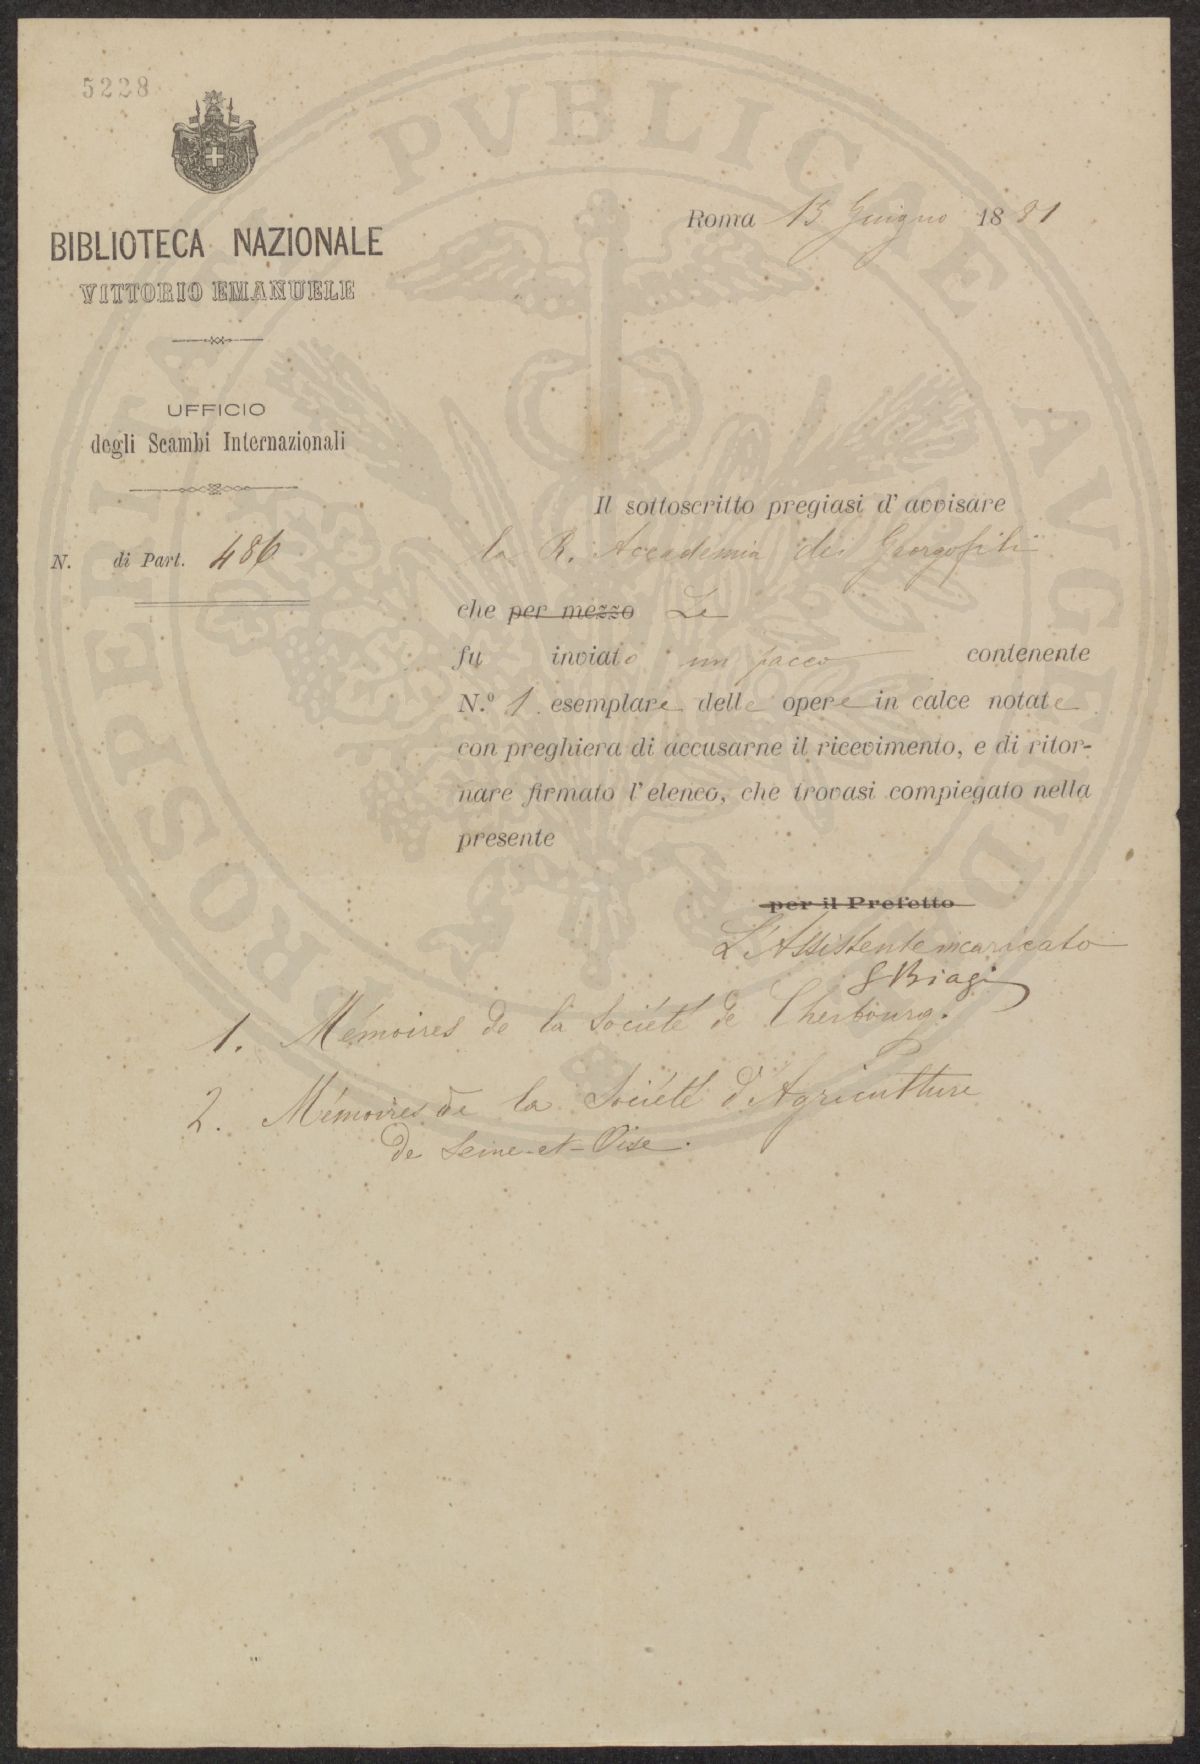 5228
BIBLIOTECA NAZIONALE
VITTORIO EMANUELE
UFFICIO
degli Scambi Internazionali
N. di Part. 486
Roma 15 Giugno 1881
Il sottoscritto pregiasi d' avvisare
la R. Accademia dei Georgofili
che per mezzo Le
fu inviato un pacco contenente
N.º 1 esemplare delle opere in calce notate
con preghiera di accusarne il ricevimento, e di ritor-
nare firmato l' elenco, che trovasi compiegato nella
presente
per il Prefetto
L'Assistente incaricato
G Biagi
1. Mémoires de la Société de Cherbourg.
2. Mémoires de la Société d'Agriculture
de Seine-et-Oise.
PROSPERITATI PVBLICAE AVGENDAE